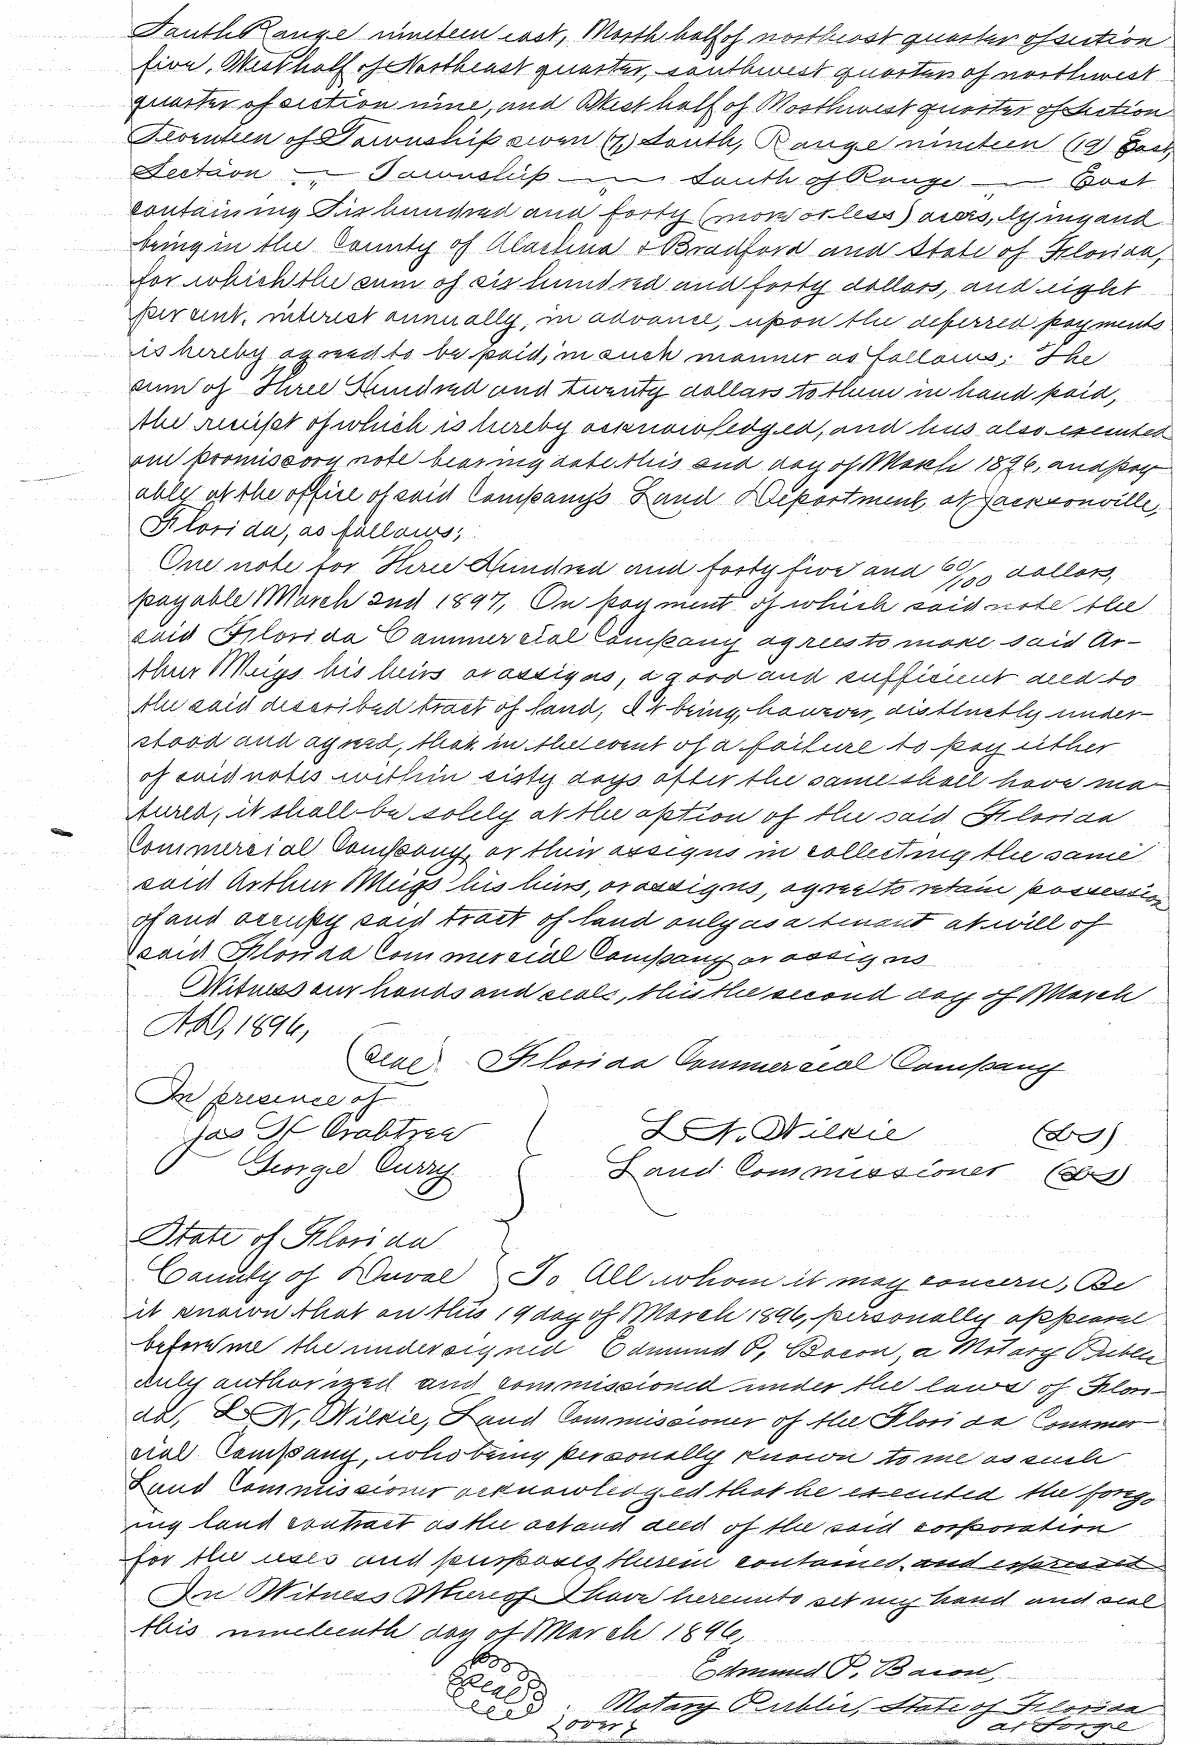 South Range nineteen east, North half of northeast quarter of section
five, West half of Northeast quarter, southwest quarter of northwest
quarter of section nine, and West half of Northwest quarter of Section
Seventeen of Township seven (7) South, Range nineteen (19) East,
Section — Township — South of Range — East
containing Six hundred and forty (more or less) acres, lying and
being in the County of Alachua & Bradford and State of Florida,
for which the sum of six hundred and forty dollars, and eight
per cent. interest annually, in advance, upon the deferred payments
is hereby agreed to be paid, in such manner as follows; The
sum of Three Hundred and twenty dollars to them in hand paid,
the receipt of which is hereby acknowledged, and has also executed
one promissory note bearing date this 2nd day of March 1896, and pay-
able at the office of said Company's Land Department, at Jacksonville,
Florida, as follows;
One note for Three Hundred and forty five and 60/100 dollars,
payable March 2nd 1897, On payment of which said note the
said Florida Commercial Company agrees to make said Ar-
thur Meigs his heirs or assigns, a good and sufficient deed to
the said described tract of land, It being, however, distinctly under-
stood and agreed, that in the event of a failure to pay either
of said notes within sixty days after the same shall have ma-
tured, it shall be solely at the option of the said Florida
Commercial Company, or their assigns in collecting the same
said Arthur Meigs his heirs, or assigns, agrees to retain possession
of and occupy said tract of land only as a tenant at will of
said Florida Commercial Company or assigns
Witness our hands and seals, this the second day of March
A.D, 1896,
(Seal) Florida Commercial Company
In presence of
Jas H Crabtree L N. Wilkie (LS)
George Curry Land Commissioner (LS)
State of Florida
County of Duval } To All whom it may concern, Be
it known that on this 19 day of March 1896, personally appeared
before me the undersigned Edmund P, Bacon, a Notary Public
duly authorized and commissioned under the laws of Flori-
da, L N, Wilkie, Land Commissioner of the Florida Commer-
cial Company, who being personally known to me as such
Land Commissioner acknowledged that he executed the forego
ing land contract as the act and deed of the said corporation
for the uses and purposes therein contained, and expressed
In Witness Whereof I have hereunto set my hand and seal
this nineteenth day of March 1896,
Edmund P. Bacon,
Seal Notary Public, State of Florida
{over} at Large